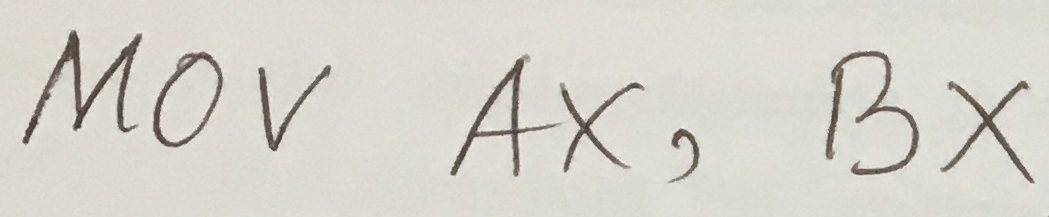 MOV AX, BX